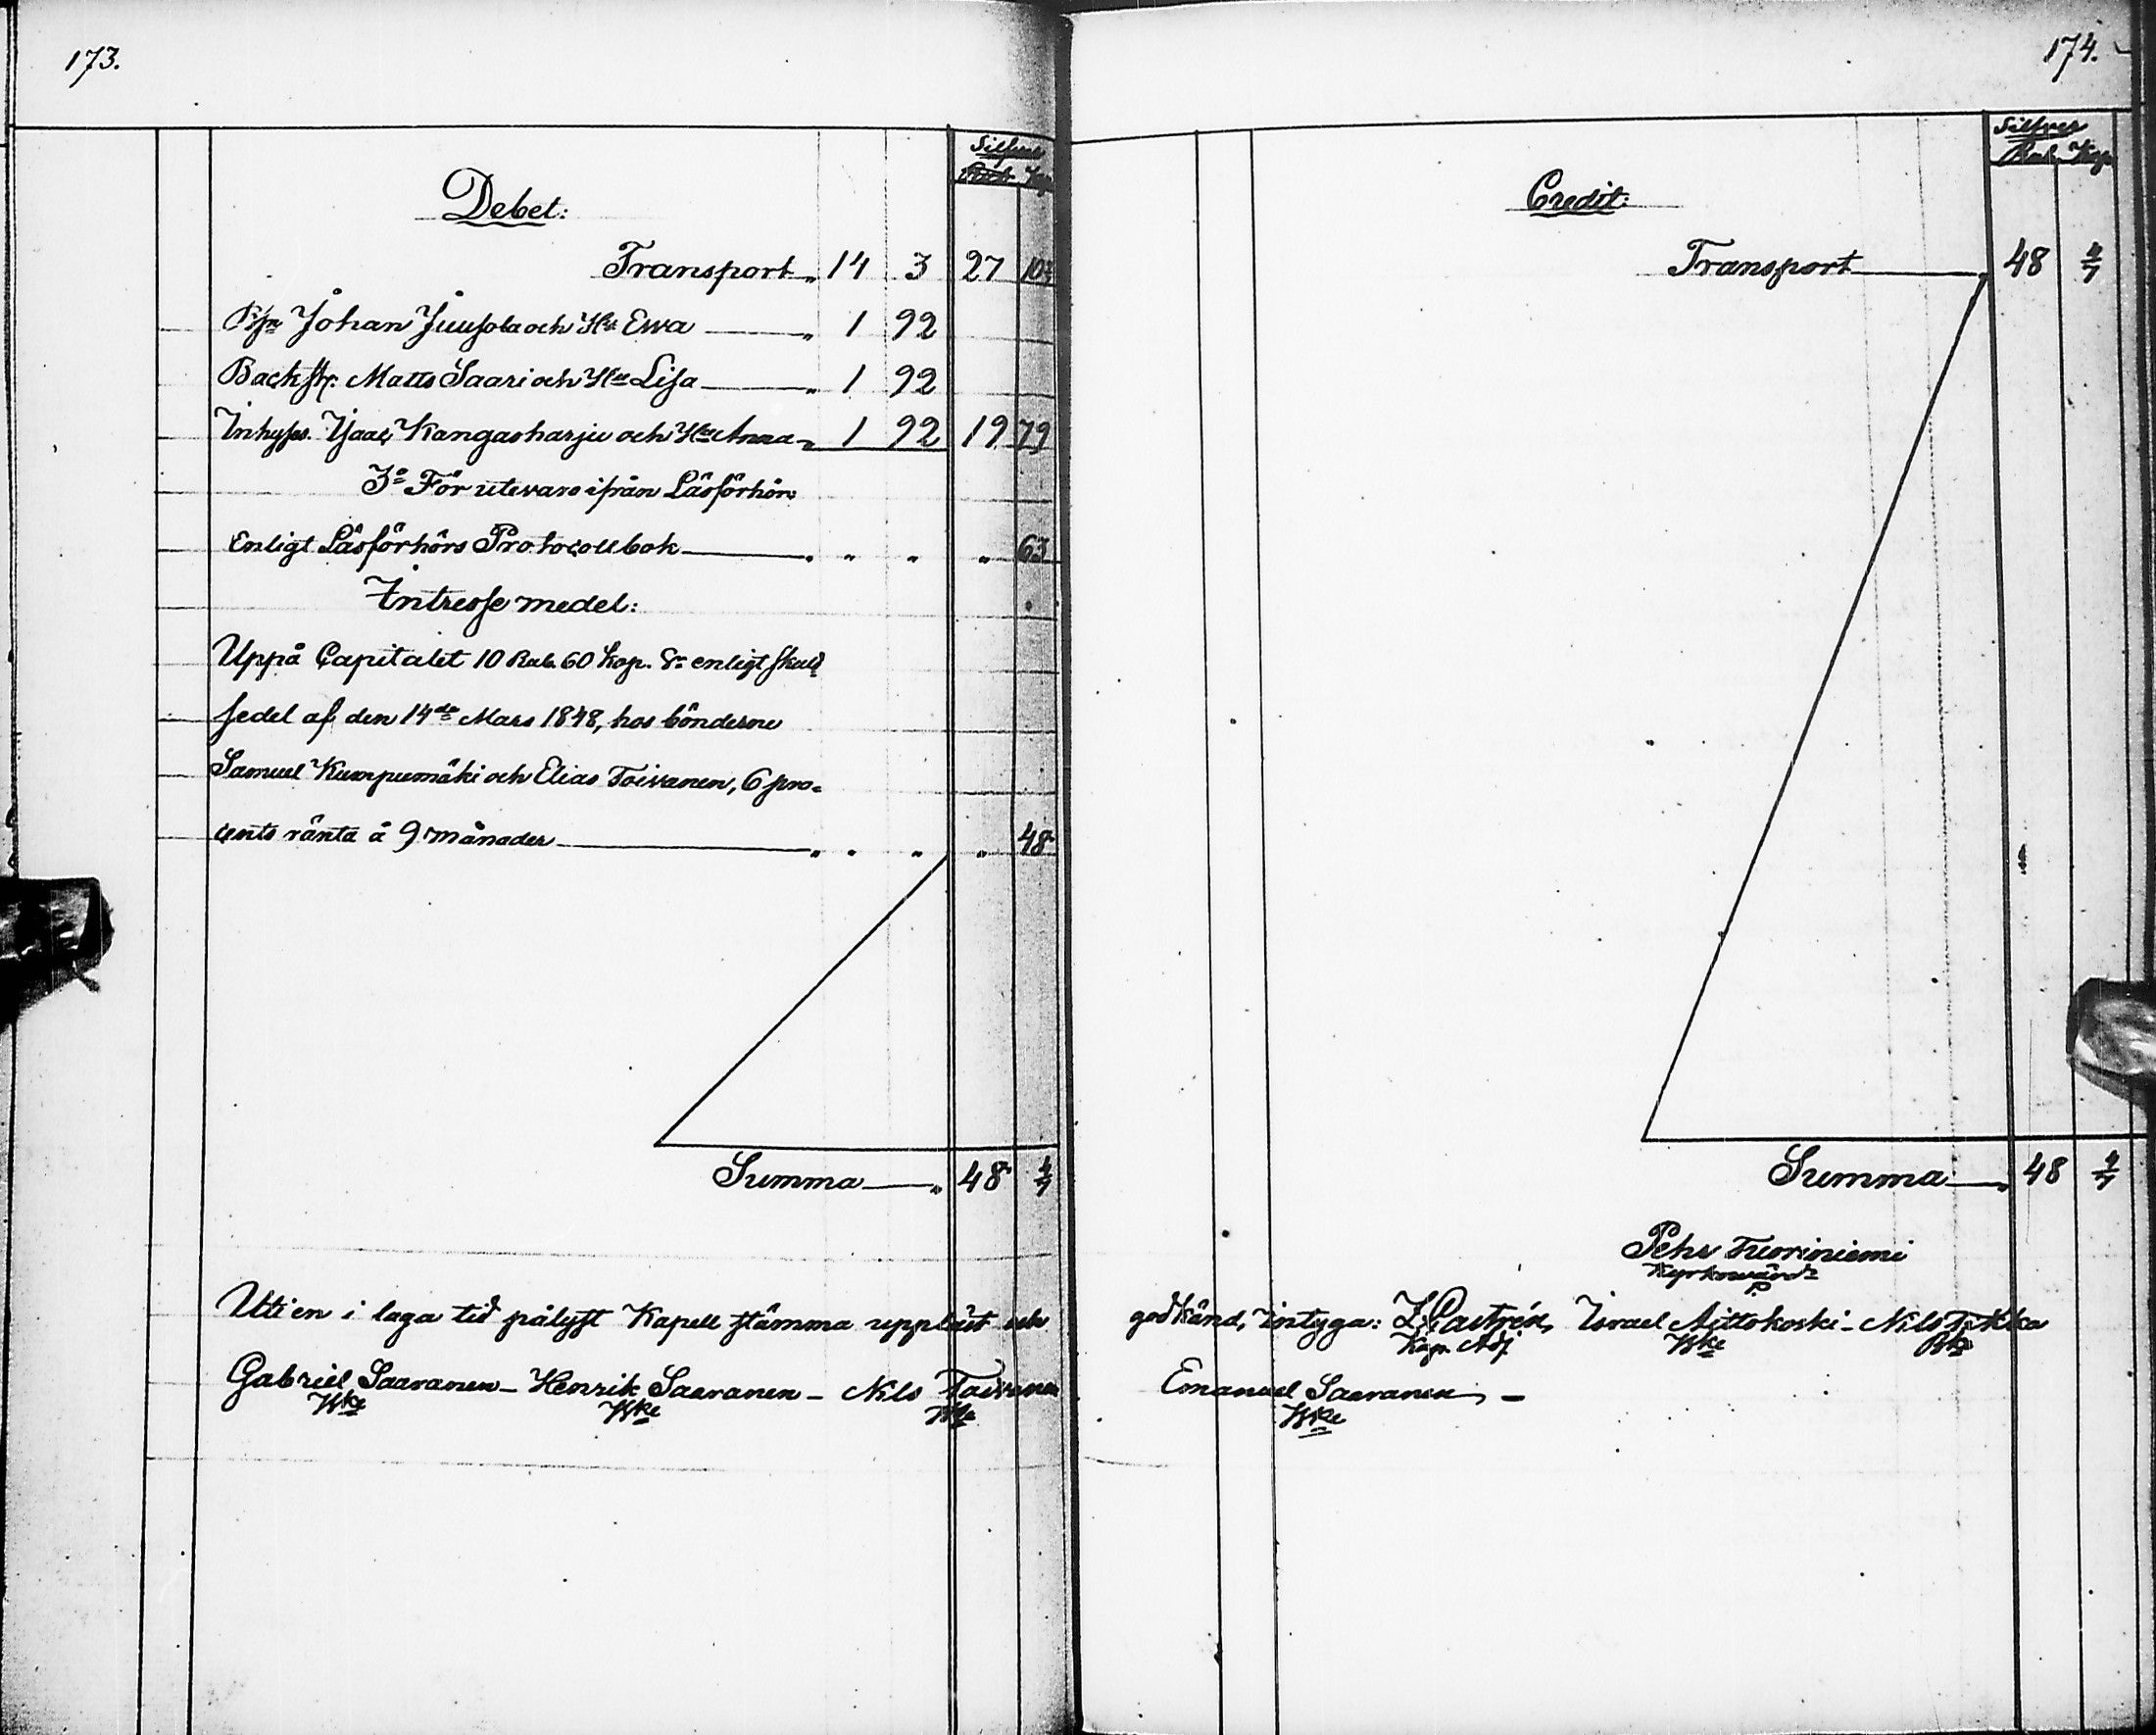 173.
Silfver
Rub. Kop
Debet:
Transport „ 14 3 27 10 4/7
Johan Juusola och Hu Ewa „ 1 92
Backst. Matts Saari och Hu Lisa „ 1 92
Inhyses. Isaac Kangasharju och Hu Anna „ 1 92 19 79
3o För utevaro ifrån Läsförhör:
Enligt Läsförhörs Protocollbok „ „ „ „ 63
Intresse medel:
Uppå Capitalet 10 Rub. 60 kop. Sr enligt skuld
sedel af den 14de Mars 1848, hos bönderne
Samuel Kumpumäki och Elias Toivanen, 6 pro-
cents ränta à 9 månader „ „ „ „ 48
Summa „ 48 4/7
Uti en i laga tid pålyst Kapell stämma uppläst och
Gabriel Saaranen – Henrik Saaranen – Nils Toivanen
174.
Silfver
Rub. Kop
Credit:
Transport 48 4/7
Summa „ 48 4/7
Pehr Tuoriniemi
Kyrkovärd
godkänd, intyga: Castrén, Israel Aittokoski – Nils
Kap. Adj
Emanuel Saaranen, –